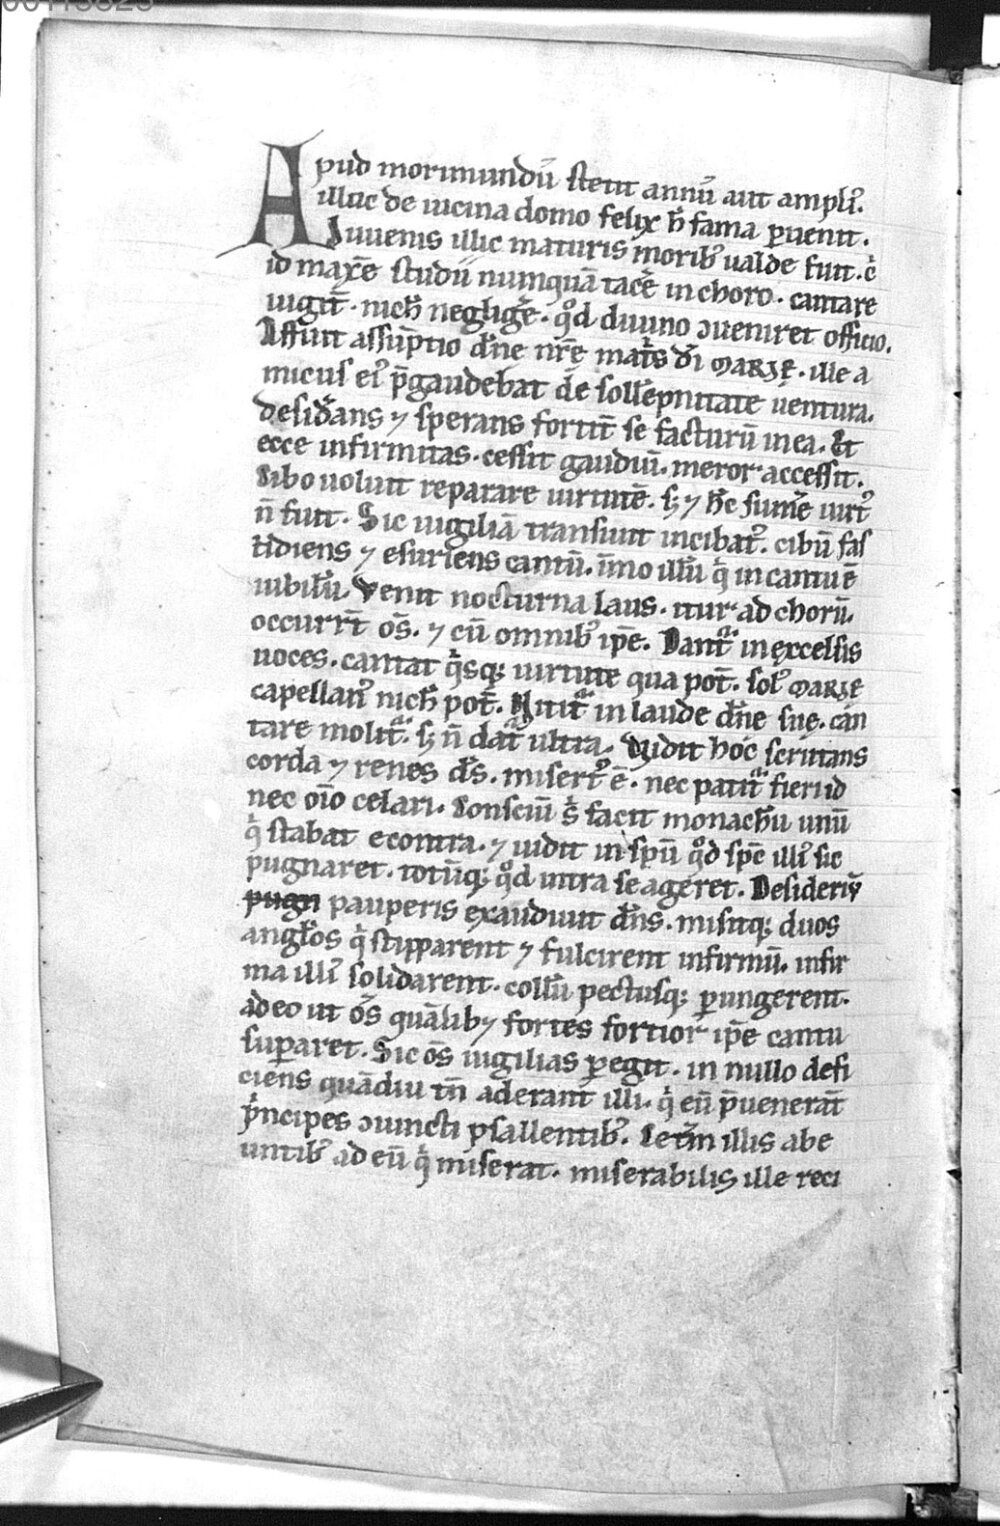 Apud morimundū stetit annū aut ampliꝰ.
illuc de uicina domo felix h̄ fama ꝑuenit.
Iuuenis illic maturis moribꝰ ualde fuit. cꝰ
id max̄e studii numquā tac̄e in choro. cantare
uigit̄. nich̄ negliḡe. qͦd diuino ↄueniret officio.
Affuit assūptio dn̄e nr̄e mat̄s dī MARIE. ille a
micus eiꝰ p̄gaudebat de soll̄epnitate uentura.
desid̄ans ⁊ sperans fortit̄ se facturū in ea. Et
ecce infirmitas. cessit gaudiū. meror accessit.
Cibo uoluit reparare uirtutē. sꝫ ⁊ h̄c sum̄e uirtꝰ
n̄ fuit. Sic uigiliā transiuit incibatꝰ. cibū fas
tidiens ⁊ esuriens cantū. īmo illū qͥ in cantu ē
iubilū. Venit nocturna laus. itur ad chorū.
occurrt̄ om̄s. ⁊ cū omnibꝰ ip̄e. Dant᷑ in excelsis
uoces. cantat qͥsqꝫ uirtute qua pot̄. solꝰ MARIE
capellanꝰ nich̄ pot̄. Nitit᷑ in laude dn̄e suę. can
tare molit᷑. sꝫ n̄ dat᷑ ultra. Vidit hoc scrutans
corda ⁊ renes ds̄. misertꝰ ē. nec patit᷑ fieri id
nec oīo celari. Consciū s̄ facit monachū unū
qͥ stabat econtra. ⁊ uidit in spū qͦd spc̄ illiꝰ sic
pugnaret. totūqꝫ qͦd intra se ageret. Desideriū
pugn pauperis exaudiuit dn̄s. misitqꝫ duos
angl̄os qͥ stipparent ⁊ fulcirent infirmū. infir
ma illiꝰ solidarent. collū pectusqꝫ ꝑungerent.
adeo ut om̄s quālib⁊ fortes fortior ip̄e cantu
suꝑaret. Sic om̄s uigilias ꝑegit. in nullo defi
ciens quādiu tn̄ aderant illi. qͥ eū p̄uenerāt
pͥncipes ↄiuncti psallentibꝰ. Cetm̄ illis abe
untibꝰ ad eū qͥ miserat. miserabilis ille reci